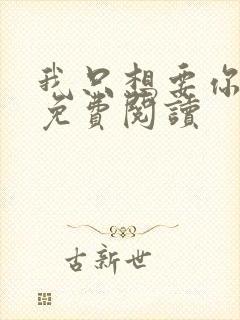 我只想要你
免費閱讀
古新世